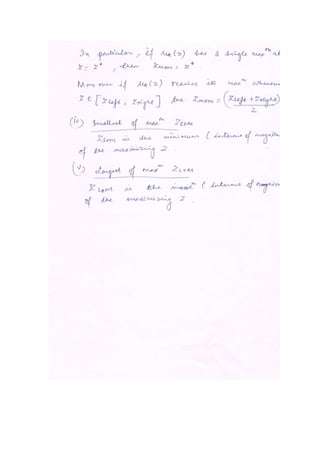 In particular, if μA(z) has a single maxm at
z = z*, then zMOM = z*.
More over if μA(z) reaches its maxm whenever
z ∈ [zleft, zright] the zMOM = (zleft + zright)
2
(iv) Smallest of maxm ZSOM
ZSOM is the minimum (interms of magnitu
of the maximizing z
(v) Largest of maxm ZLOM
ZLOM is the maxm (interms of
of the maximizing z.